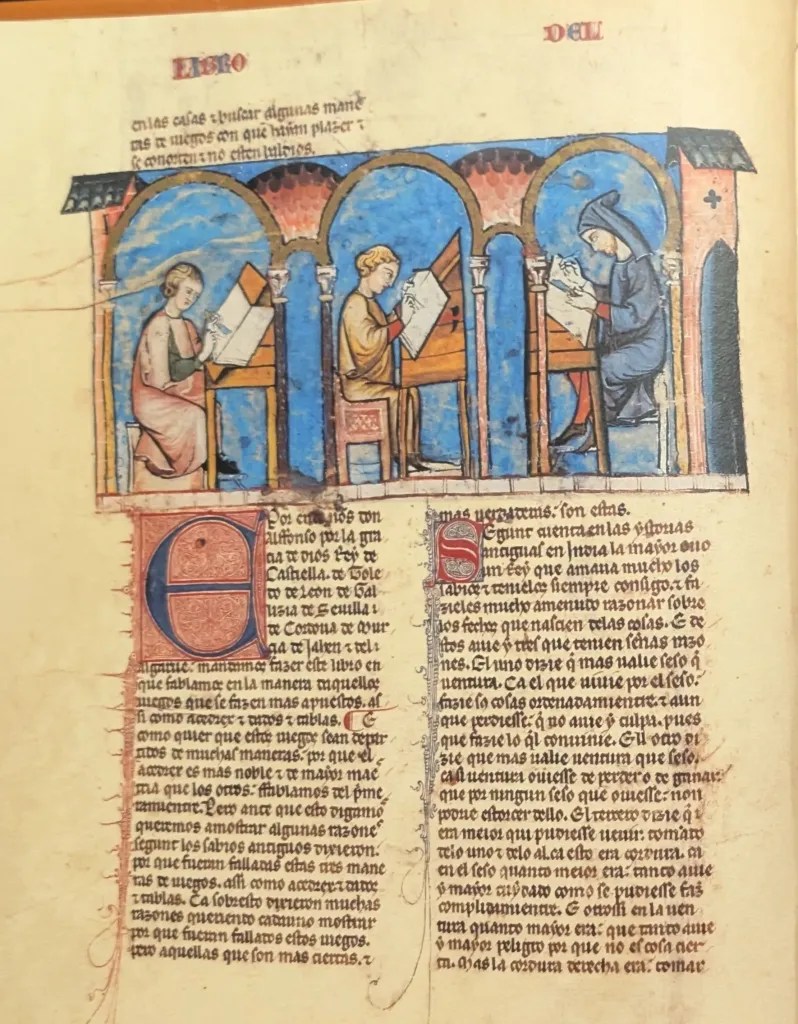 LIBRO
DEL
en las casas ⁊ buscar algunas mane
ras de iuegos con que hayan plazer ⁊
se conorten ⁊ no esten baldios.
Por end nos don
Alffonso por la gra
cia de dios Rey de
Castiella. de Tole
do de Leon de Gal
lizia de Seuilla ⁊
de Cordoua de Mur
cia de Jahen ⁊ del
algarue. mandamos fazer este libro en
que fablamos en la manera daquellos
iuegos que se fazen mas apuestos. as
si como acedrex ⁊ dados ⁊ tablas. E
como quier que estos iuegos sean depar
tidos de muchas maneras. por que el
acedrex es mas noble ⁊ de mayor maes
tria que los otros. ffablamos del prime
ramientre. Pero ante que esto digamos
queremos amostrar algunas razones
segunt los sabios antiguos dixieron.
por que fueran falladas estas tres mane
ras de iuegos. assi como acedrex ⁊ dados
⁊ tablas. Ca sobresto dixieron muchas
razones queriendo cadauno mostrar
por que fueran fallados estos iuegos.
pero aquellas que son mas ciertas. ⁊
mas uerdaderas. son estas.
Segunt cuenta en las ystorias
antiguas en India la mayor ouo
un Rey que amaua mucho los
sabios ⁊ tenielos siempre consigo. ⁊ fa
zieles mucho amenudo razonar sobre
los fechos que nascien delas cosas. E de
stos auie y tres que tenien señas razo
nes. El uno dizie q̃ mas ualie seso q̃
uentura. Ca el que uiuie por el seso.
fazie sus cosas ordenadamientre. ⁊ aun
que perdiesse. q̃ no auie y culpa. pues
que fazie lo q̃l conuinie. El otro di
zie que mas ualie uentura que seso.
ca si uentura ouiesse de perder o de ganar.
que por ningun seso que ouiesse. non
podrie estorcer dello. El tercero dizie q̃
era meior qui pudiesse ueuir. tomãdo
delo uno ⁊ delo al. ca esto era cordura. ca
en el seso quanto meior era. tanto auie
y mayor cuydado como se pudiesse fazer
complidamientre. E otrossi en la uen
tura quanto mayor era. que tanto auie
y mayor peligro por que no es cosa cier
ta. Mas la cordura derecha era. tomar